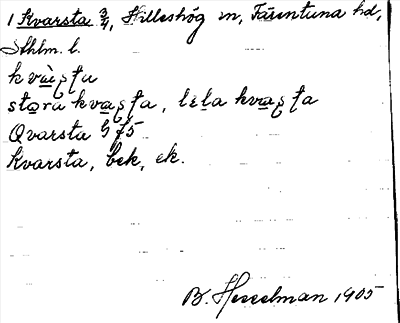 1 Kvarsta 3/4, Hilleshög sn, Färentuna hd,
Sthlm. l.
kvàʂʈa
stọra kvaʂʈa, lɛla kvaʂʈa
Qvarsta G f5
Kvarsta, bek, ek.
B. Hesselman 1905